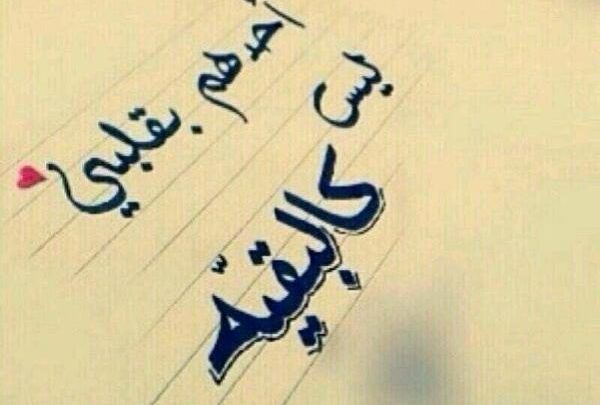 أحدهم بقلبي
ليس
كالبقيّه